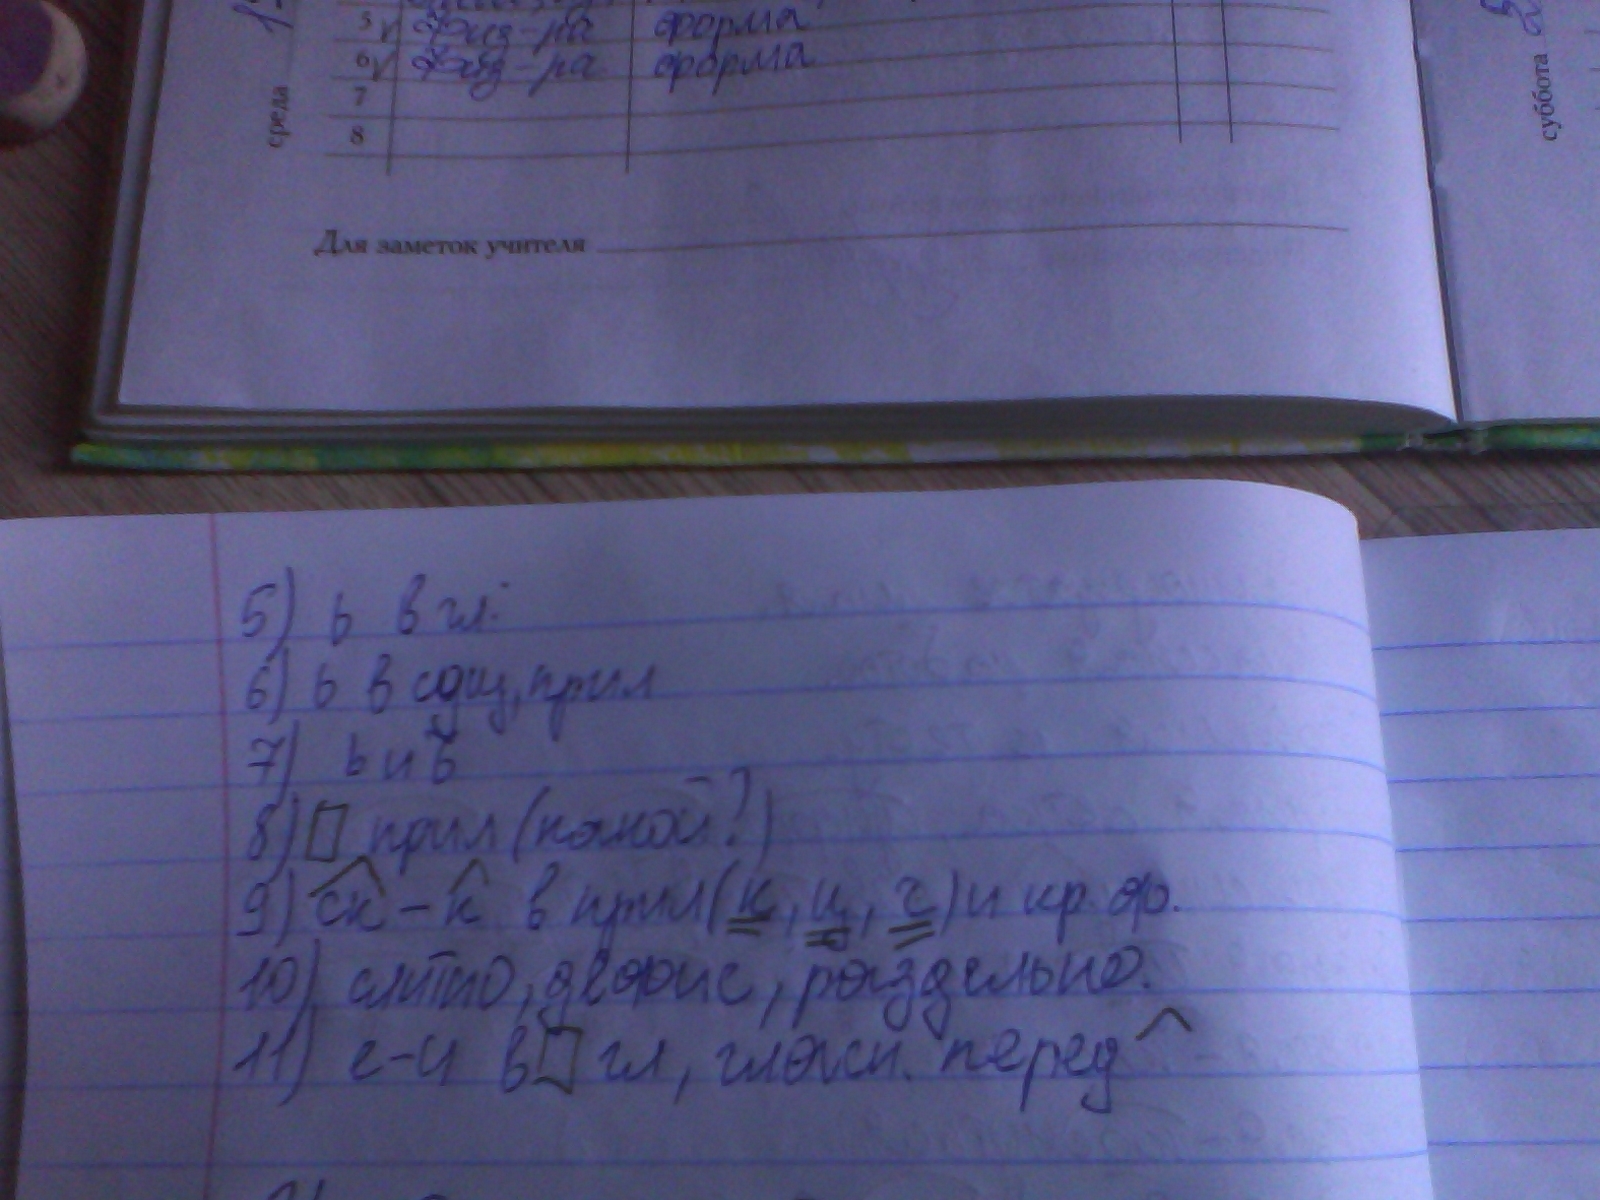 среда
5 √ Физ-ра форма
6 √ Физ-ра форма
7
8
Для заметок учителя
суббота
5) ь в гл.
6) ь в сущ, прил
7) ь и ъ
8) прил (какой?)
9) ск - к в прил (к, ц, ч) и кр. ф.
10) слитно, дефис, раздельно.
11) е-и в гл, гласн. перед